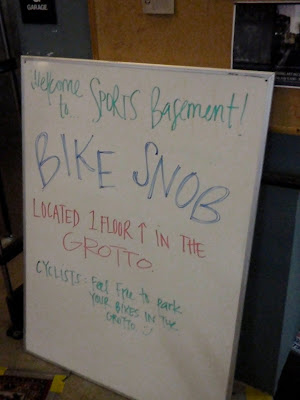 GARAGE
Welcome
to SPORTS Basement!
BIKE SNOB
LOCATED 1 FLOOR ↑ IN THE
GROTTO.
CYCLISTS: Feel Free to park
YOUR BIKES IN THE
GROTTO. :)